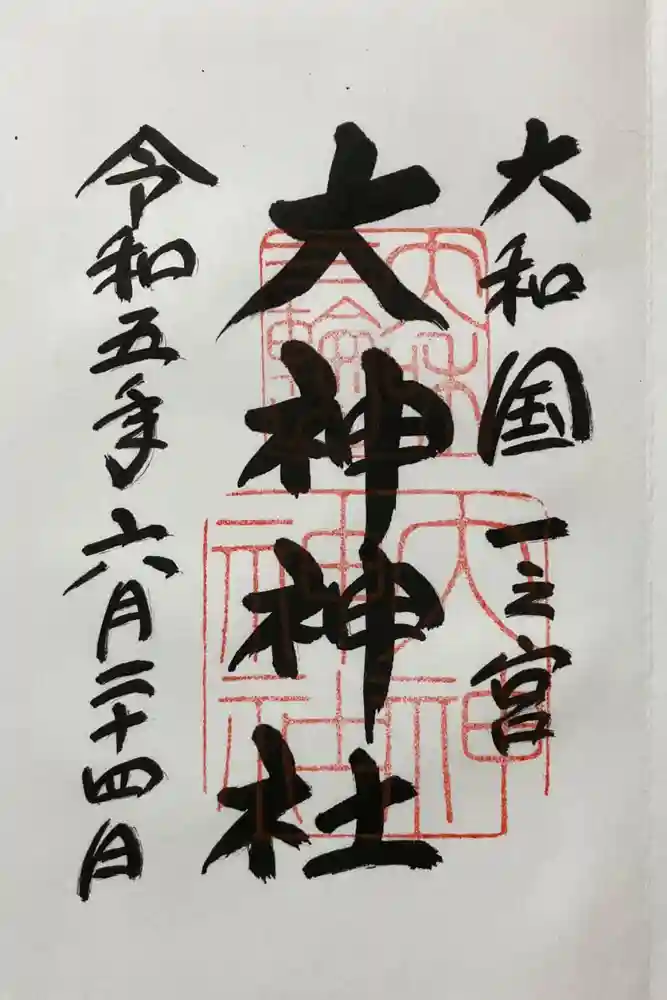 大和国 一之宮
大神神社
令和五年六月二十四日
大神
神社